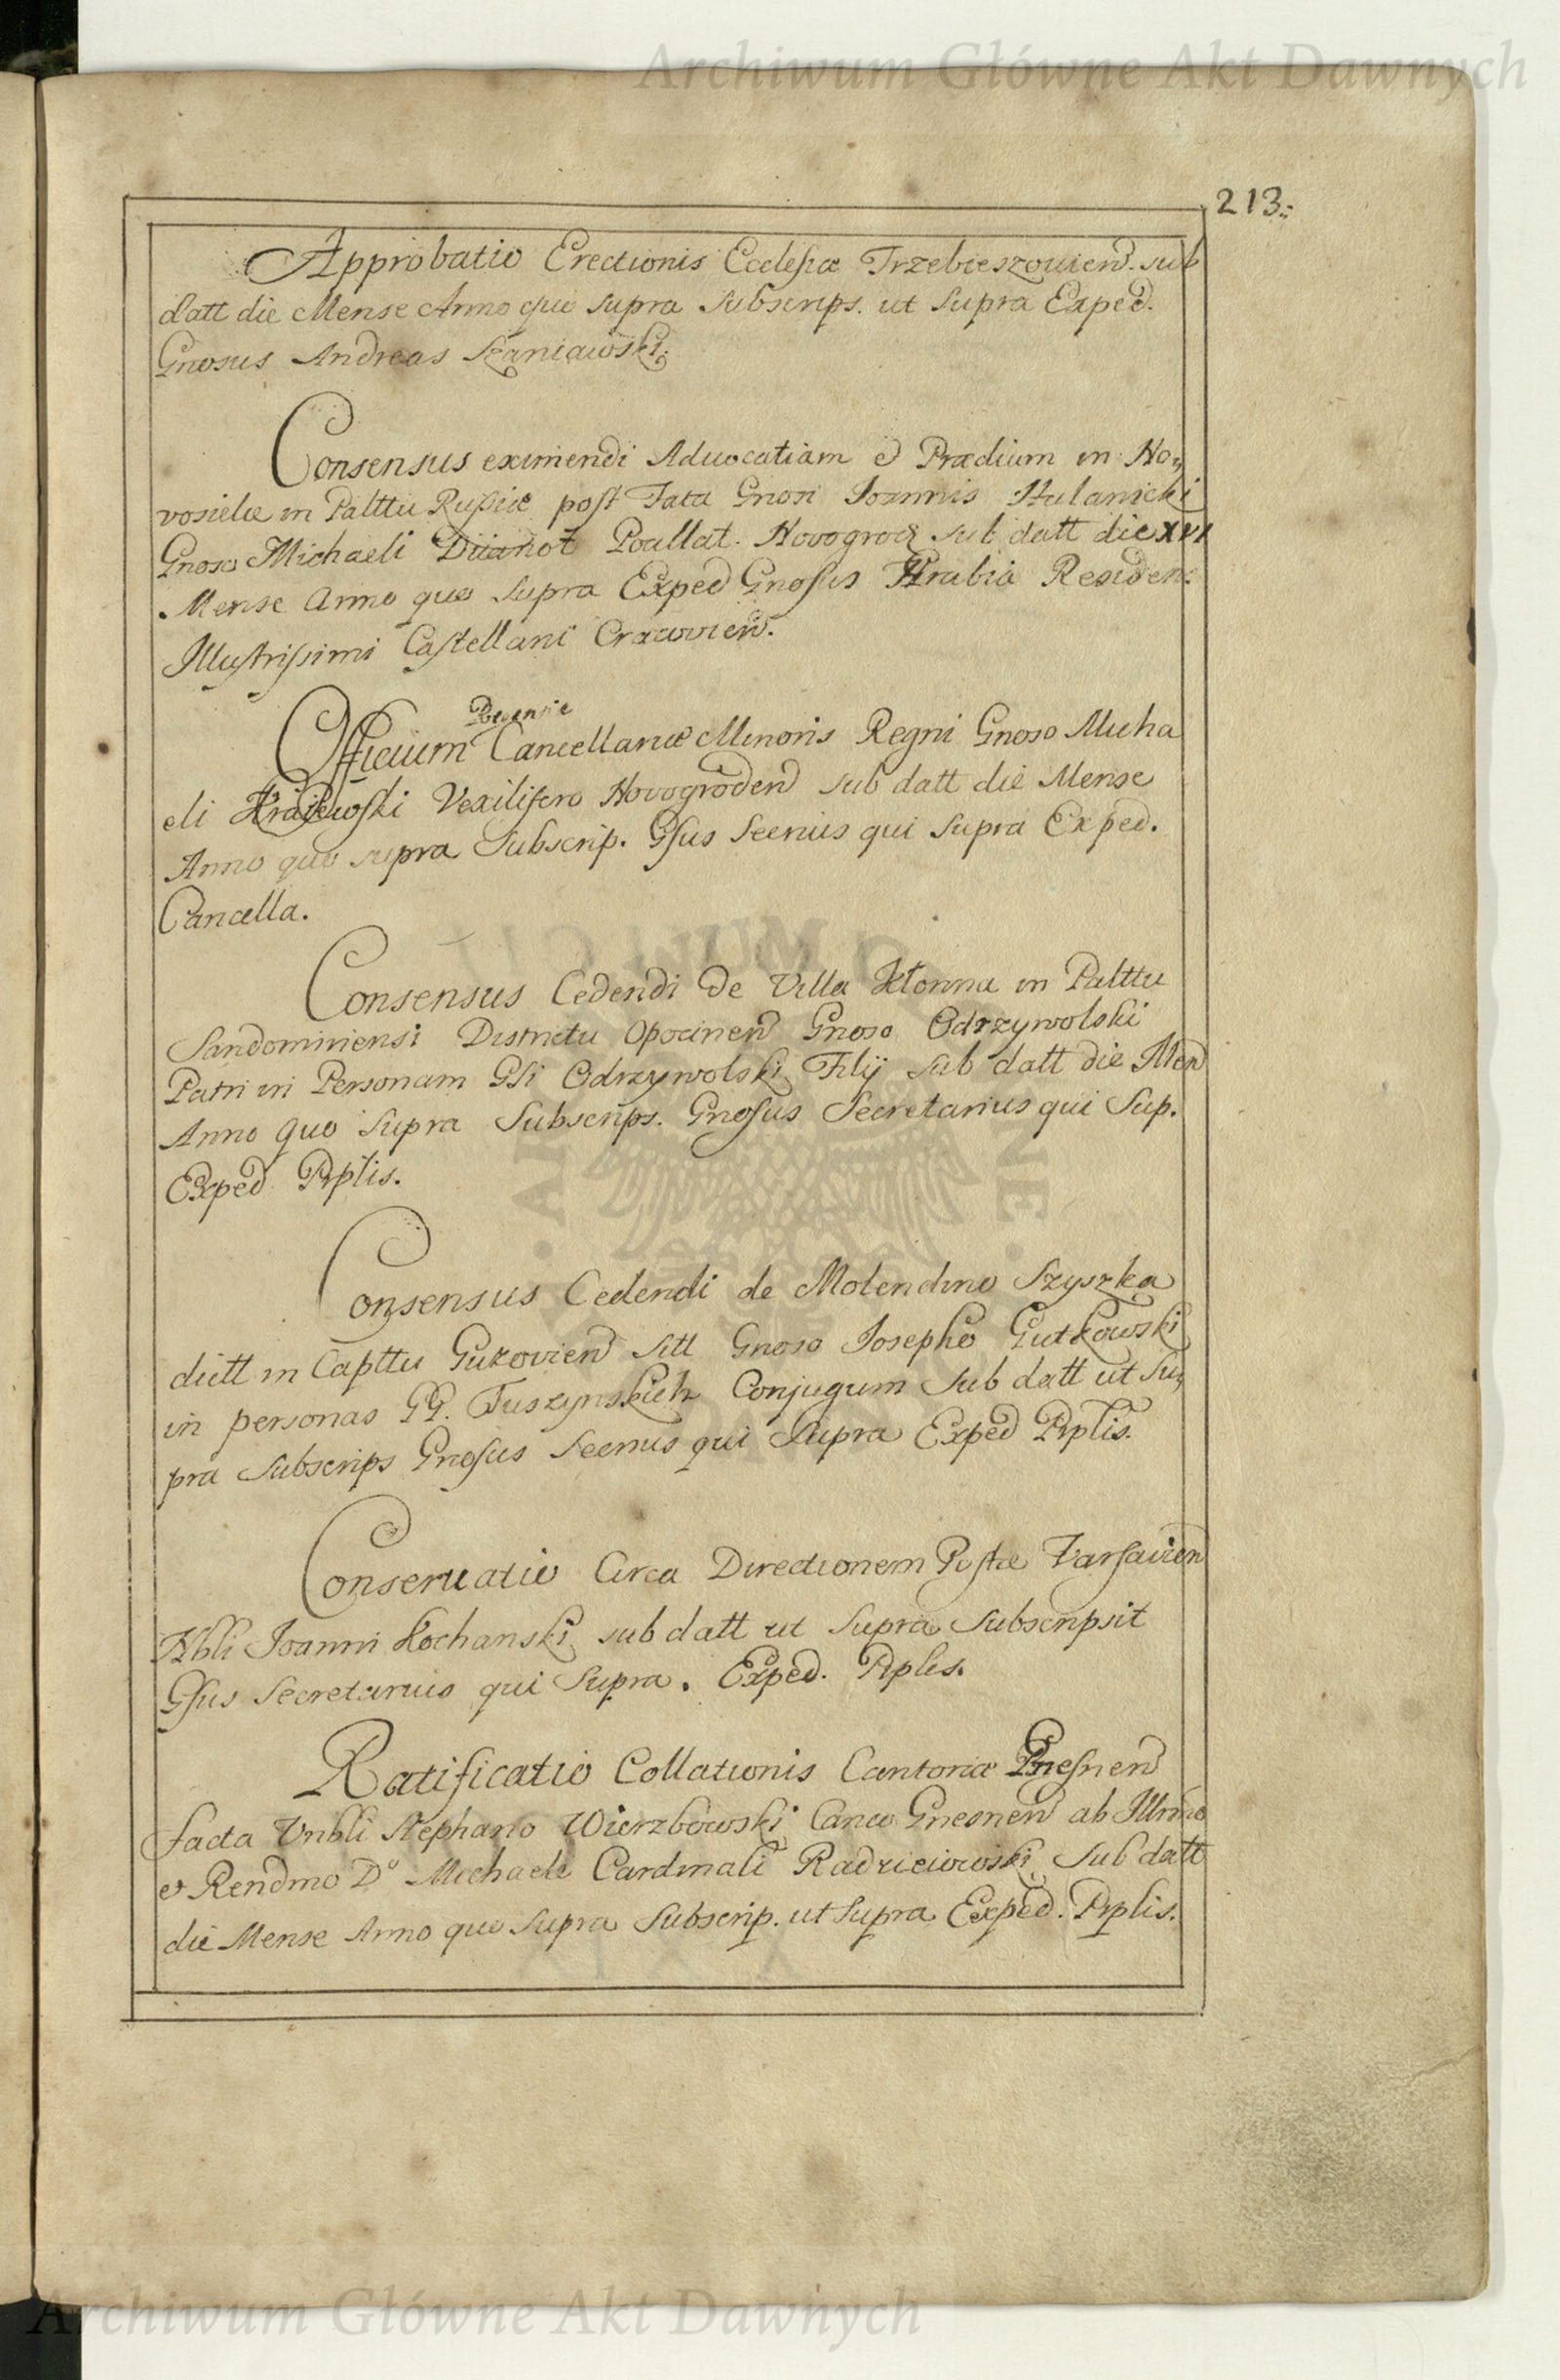 Archiwum Główne Akt Dawnych
213.
Approbatio Erectionis Ecclesiæ Trzebieszovien. sub
datt die Mense Anno quo supra Subscrips. ut Supra Exped.
Gnosus Andreas Szaniawski.
Consensus eximendi Advocatiam et Prædium in No,
vosielce in Palttu Russiæ post Fata Gnosi Joannis Hulanicki
Gnoso Michaeli Poallat. Novogrod sub datt die XVI
Mense Anno quo supra Exped Gnosus Hrabia Residen:
Illustrissimi Castellani Cracovien.
Regentiæ
Officium Cancellariæ Minoris Regni Gnoso Micha
eli Kraiewski Vexilifero Novogroden sub datt die Mense
Anno quo supra Subscrip. Gsus Secrius qui supra Exped.
Cancella.
Consensus Cedendi de Villa Klonna in Palttu
Sandomiriensi Districtu Opocinen Gnoso Odrzywolski
Patri in Personam Gsi Odrzywolski Filij sub datt die Men
Anno quo Supra Subscrips. Gnosus Secretarius qui Sup.
Exped Rplis.
Consensus Cedendi de Molendino Szyszka
dictt in Capttu Guzovien sitt Gnoso Josepho Gutkowski
in personas GG. Tuszynskich Conjugum sub datt ut Su,
pra Subscrips Gnosus Secrius qui Supra Exped Rplis.
Conservatio Circa Directionem Postæ Varsavien
Nbli Joanni Kochanski sub datt ut Supra Subscripsit
Gsus Secretarius qui Supra. Exped. Rplis.
Ratificatio Collationis Cantoriæ Gnesnen
facta Vnbli Stephano Wierzbowski Canco Gnesnen ab Illrmo
et Rendmo Do Michaele Cardinali Radzieiowski sub datt
die Mense Anno quo Supra Subscrip. ut Supra Exped. Rplis.
Archiwum Główne Akt Dawnych